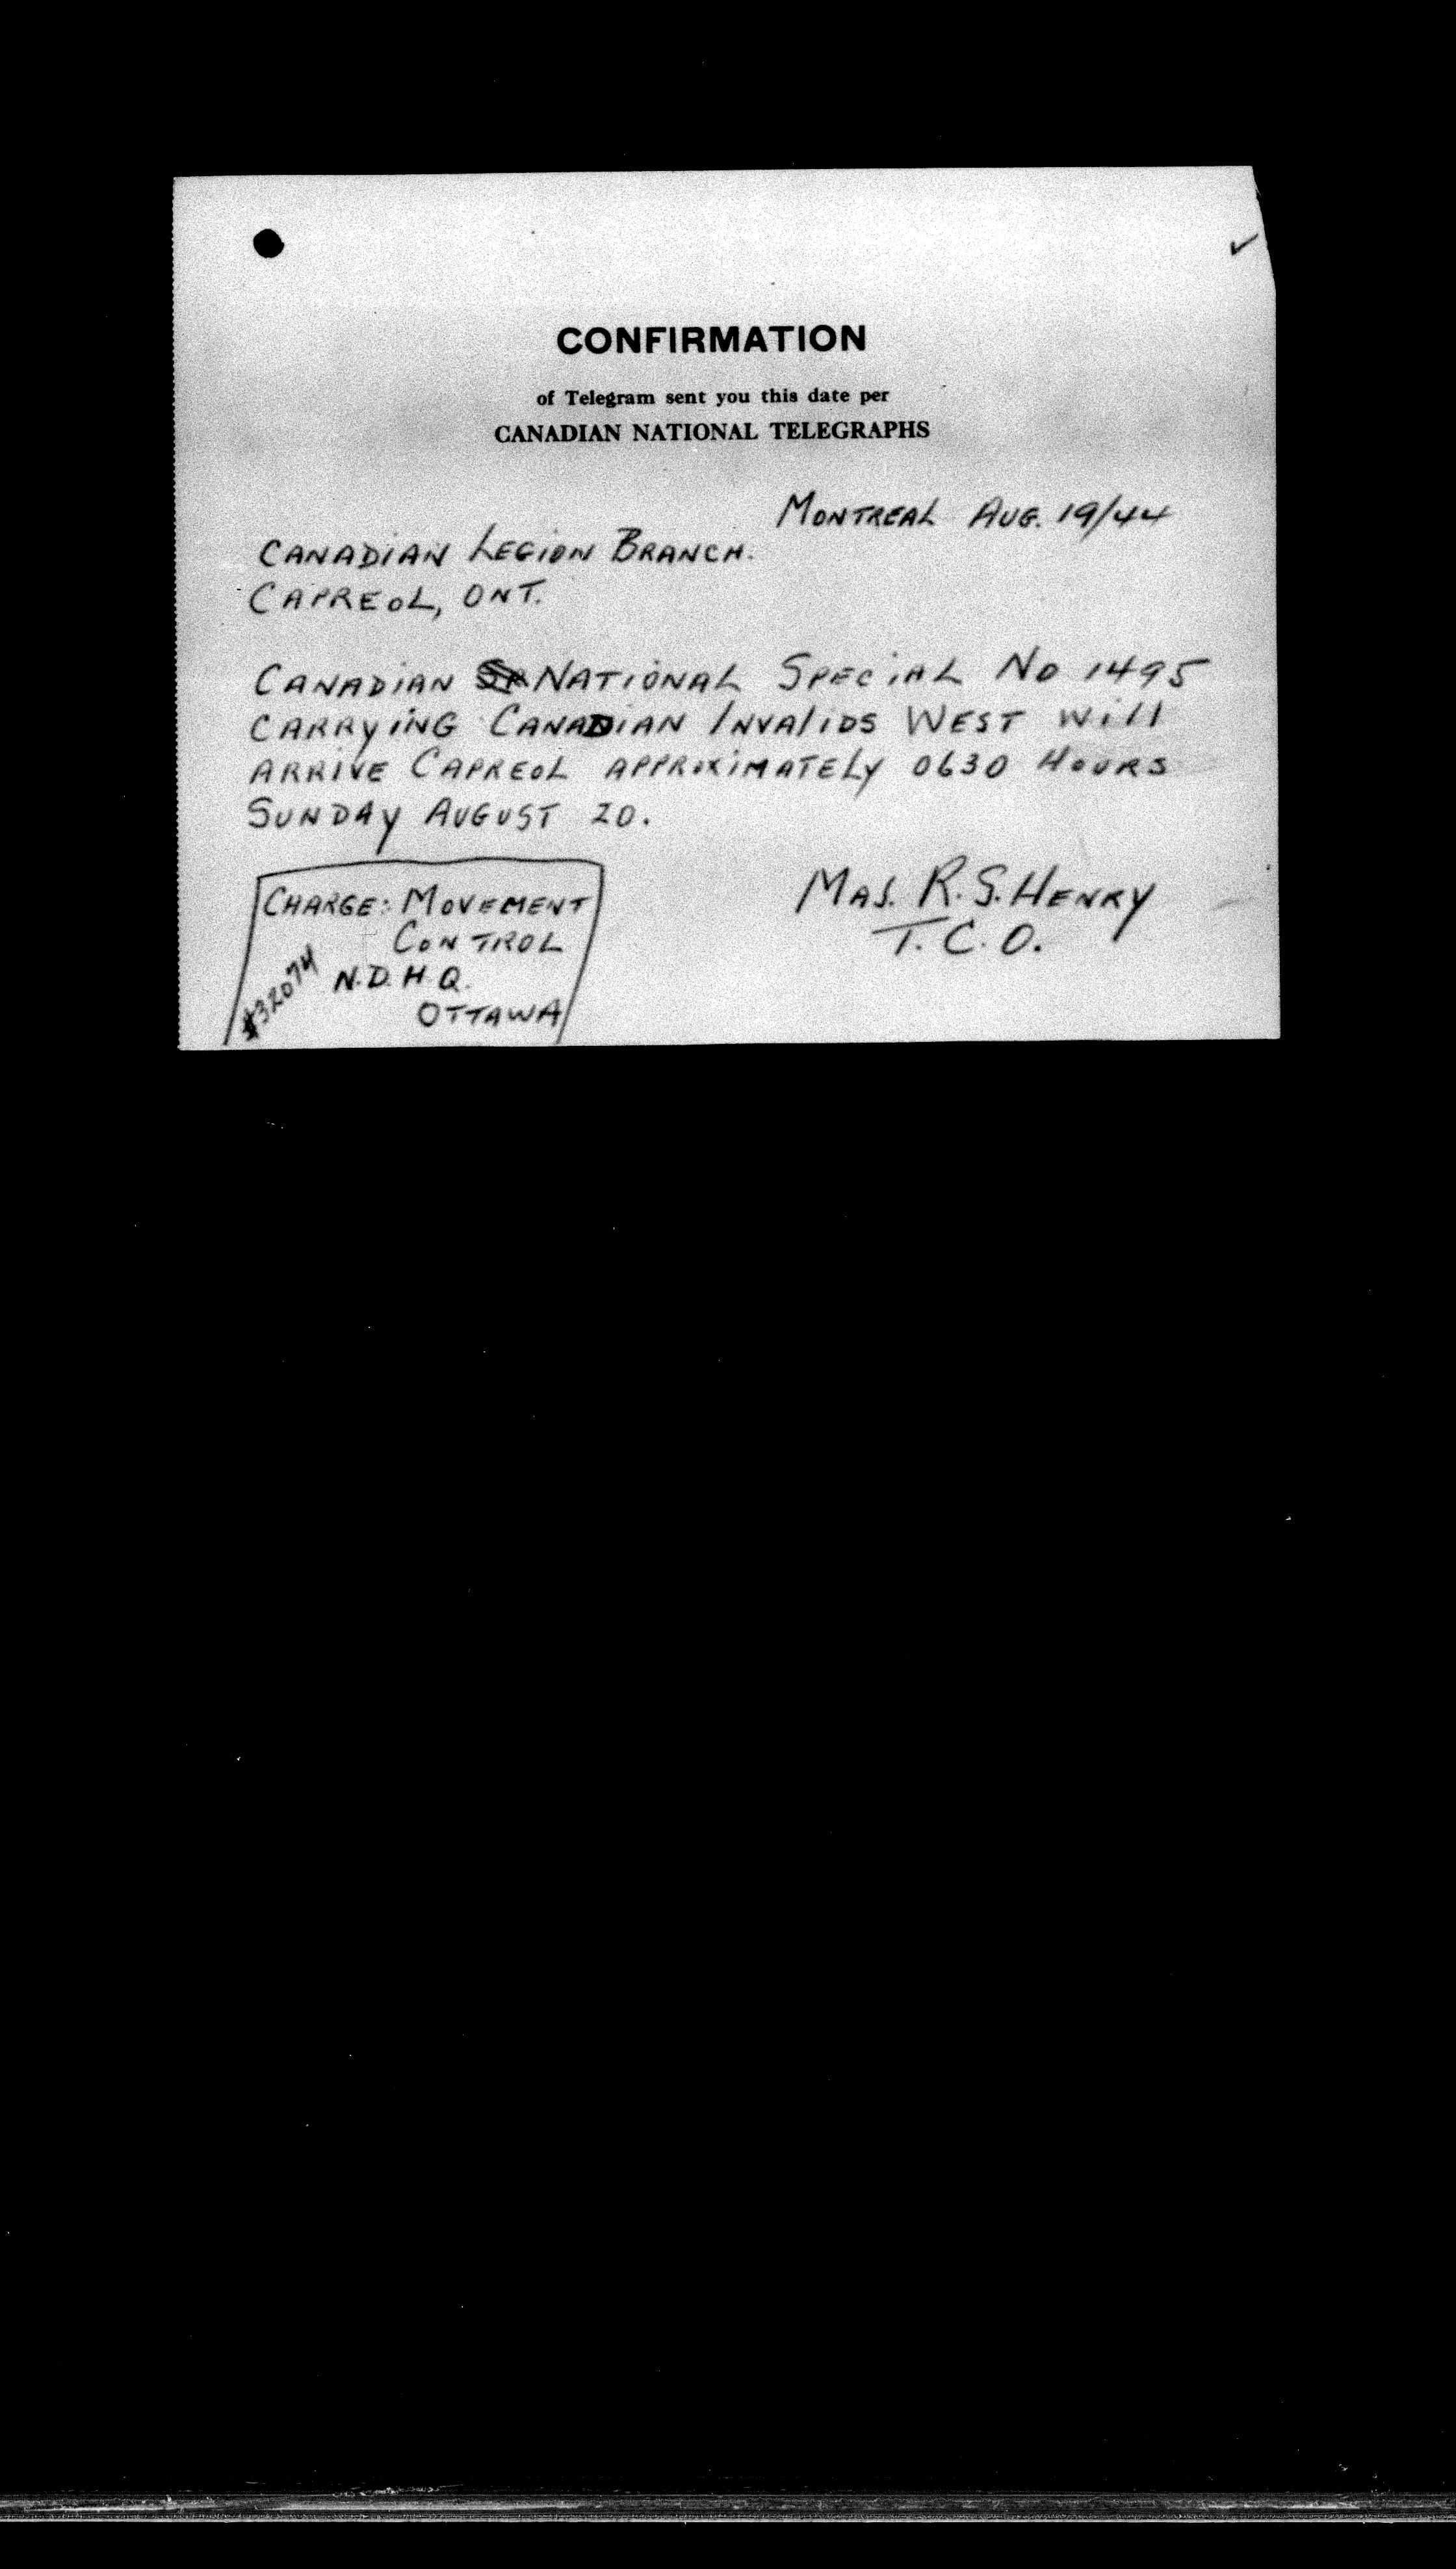 CONFIRMATION
of Telegram sent you this date per
CANADIAN NATIONAL TELEGRAPHS
MONTREAL AUG. 19/44
CANADIAN LEGION BRANCH.
CAPREOL, ONT.
CANADIAN NATIONAL SPECIAL NO 1495
CARRYING CANADIAN INVALIDS WEST WILL
ARRIVE CAPREOL APPROXIMATELY 0630 HOURS
SUNDAY AUGUST 20.
MAJ. R. S. HENRY
T. C. O.
CHARGE: MOVEMENT
CONTROL
N. D. H. Q.
OTTAWA
#32074